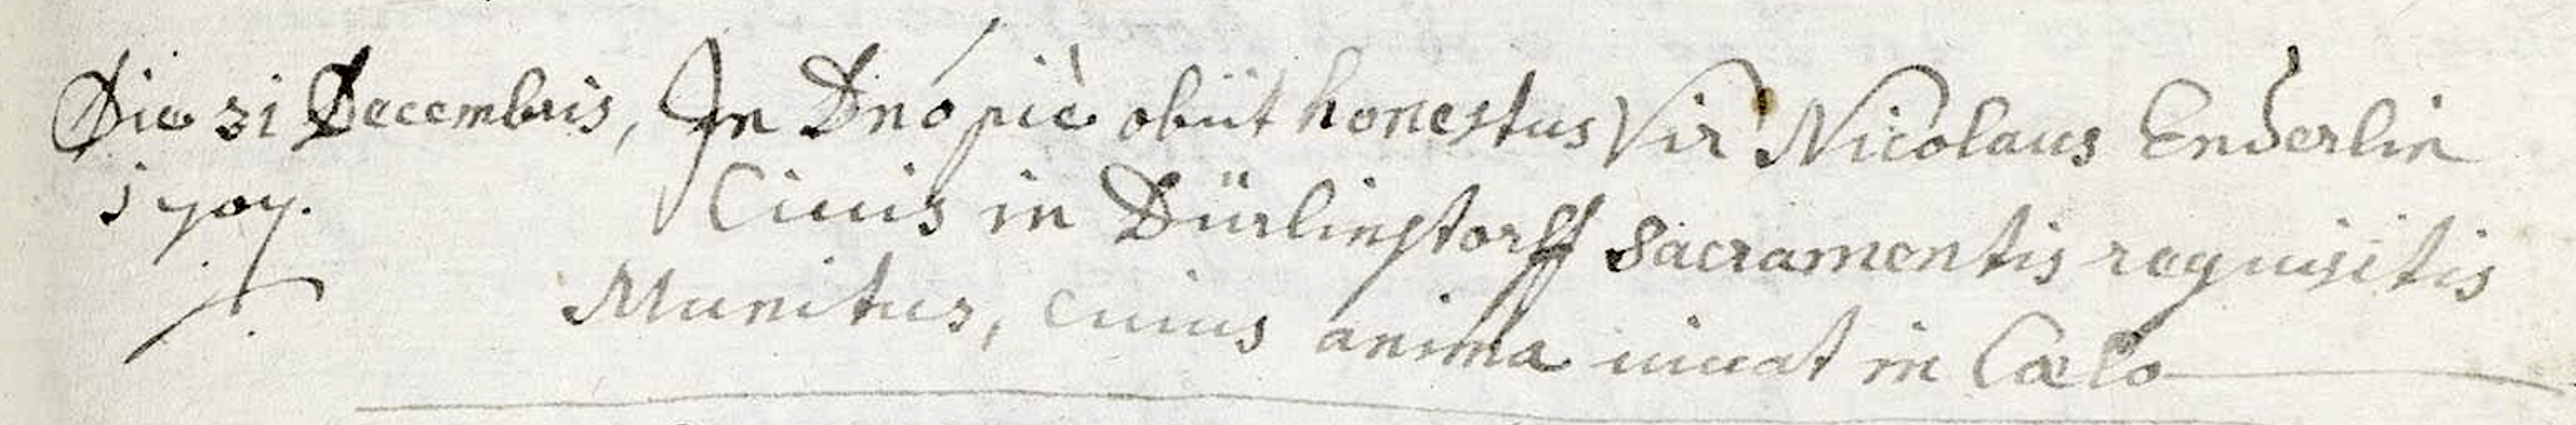 Die 31 Decembris, In Dnó piè obiit honestus Vir Nicolaus Enderlin
1707. Ciuis in Dürlinstorff Sacramentis requisitis
Munitus, cuius anima uiuat in Cœlo